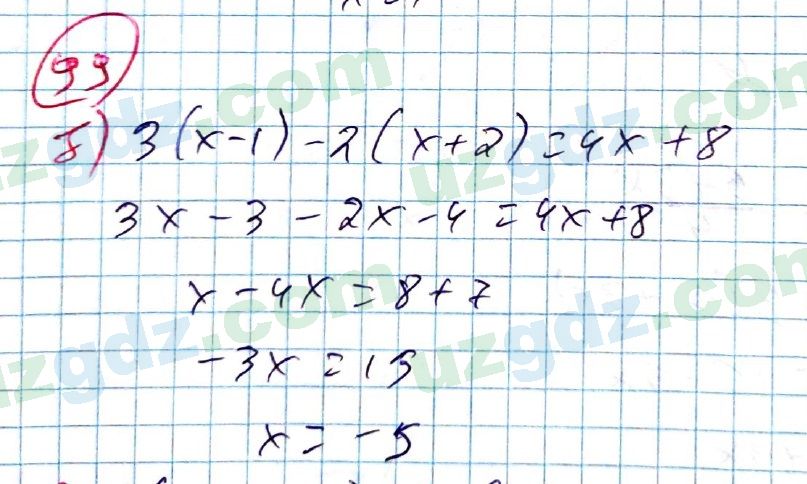 99
б) 3(x-1)-2(x+2)=4x+8
3x-3-2x-4=4x+8
x-4x=8+7
-3x=15
x=-5
uzgdz.com
uzgdz.com
uzgdz.com
uzgdz.com